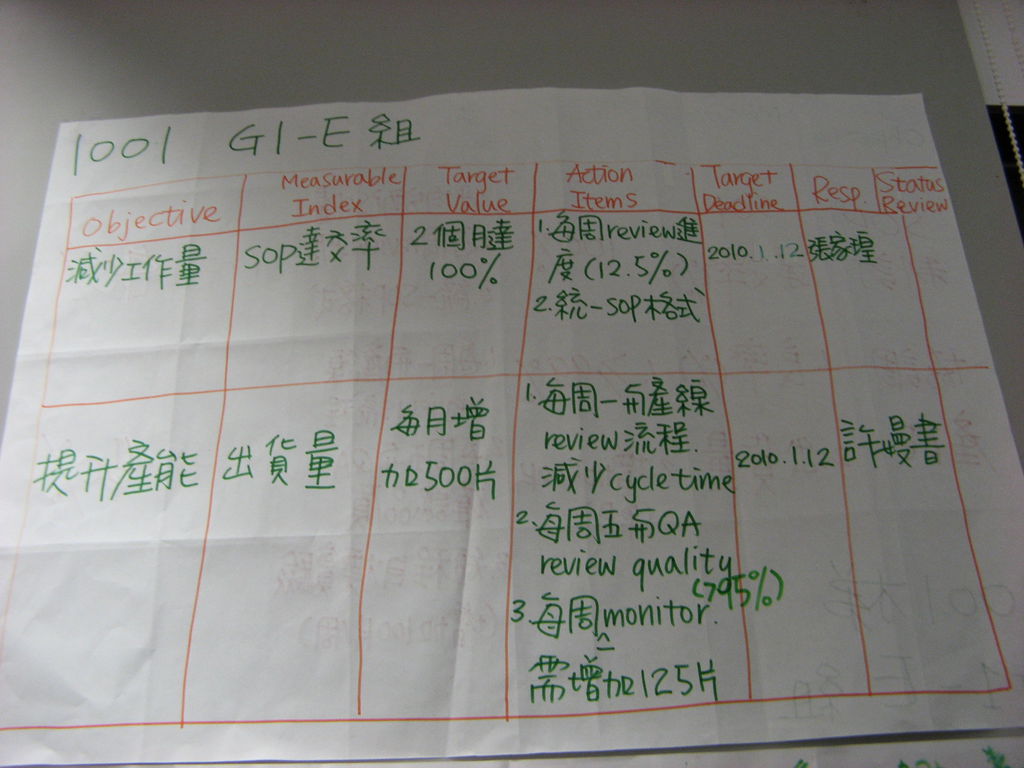 1001 G1-E組
Objective
Measurable
Index
Target
Value
Action
Items
Target
Deadline
Resp.
Status
Review
減少工作量
SOP達交率
2個月達
100%
1.每周review進
度(12.5%)
2.統一SOP格式
2010.1.12
張家瑝
提升產能
出貨量
每月增
加500片
1.每周一與產線
review流程.
減少cycle time
2.每周五與QA
review quality
(>95%)
3.每周monitor.
需增加125片
2010.1.12
許嫚書